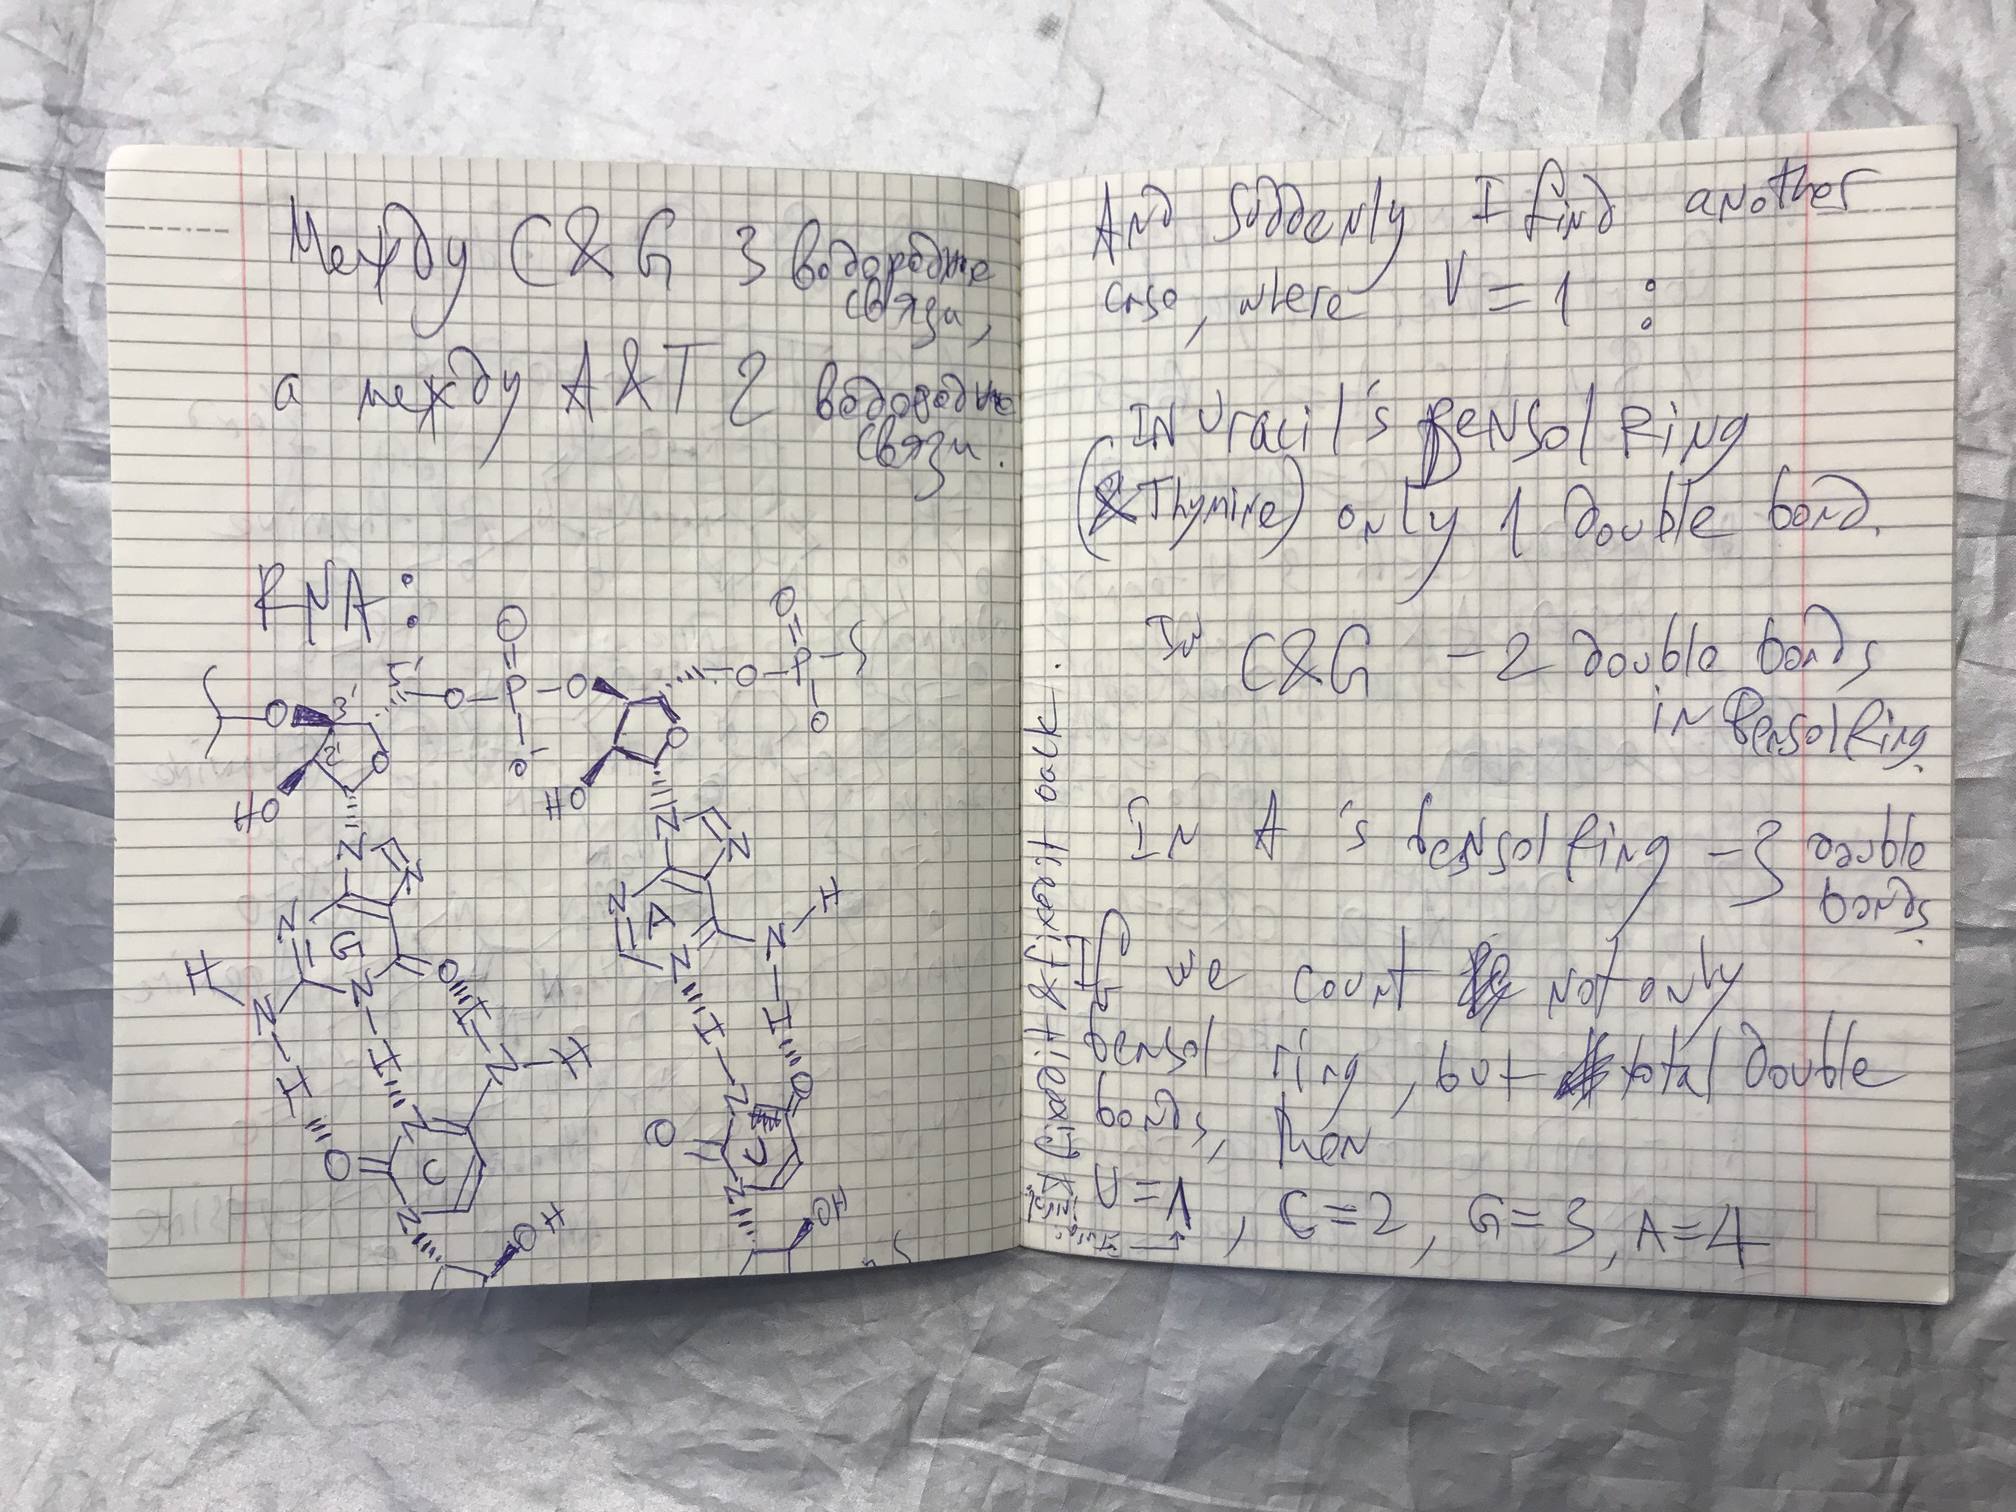 Между C&G 3 водородные
связи,
а между A&T 2 водородные
связи.
RNA:
O
O
O
3'
5'
O
P
O
O
P
O
O
2'
O
O'
HO
HO
N
N
N
N
N
G
N
A
N
N
H
N
H
O
H
N
H
N
H
H
H
H
O
N
C
N
O
N
C
O
N
OH
HO
And suddenly I find another
case, where V = 1 :
IN Uracil's Bensol Ring
(& Thymine) only 1 double bond.
IN C&G – 2 double bonds
in Bensol Ring.
IN A's bensol Ring – 3 double
bonds.
If we count not only
bensol ring, but total double
bonds, then
U=1, C=2, G=3, A=4